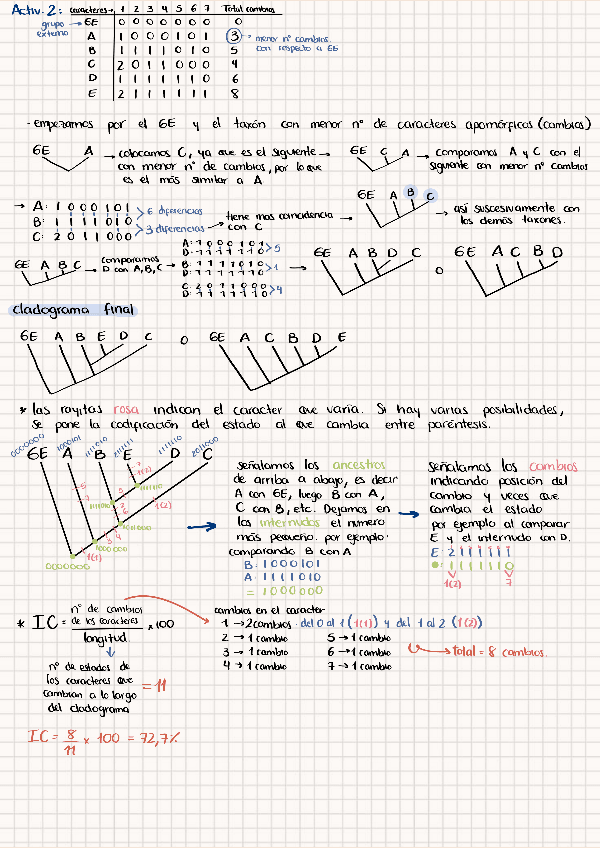 Activ. 2: caracteres→ 1 2 3 4 5 6 7 Total cambios
grupo externo → GE 0 0 0 0 0 0 0 0
A 1 0 0 0 1 0 1 3 → menor nº cambios
con respecto a GE
B 1 1 1 1 0 1 0 5
C 2 0 1 1 0 0 0 4
D 1 1 1 1 1 1 0 6
E 2 1 1 1 1 1 1 8
- empezamos por el GE y el taxón con menor nº de caracteres apomórficos (cambios)
GE A → colocamos C, ya que es el siguiente
con menor nº de cambios, por lo que
es el más similar a A
GE C A → comparamos A y C con el
siguiente con menor nº cambios
→ A: 1 0 0 0 1 0 1
B: 1 1 1 1 0 1 0
C: 2 0 1 1 0 0 0
> 6 diferencias
> 3 diferencias → tiene mas coincidencia
con C
GE A B C → así suscesivamente con
los demás taxones.
GE A B C → comparamos
D con A, B, C →
A: 1 0 0 0 1 0 1
D: 1 1 1 1 1 1 0 >5
B: 1 1 1 1 0 1 0
D: 1 1 1 1 1 1 0 >1
C: 2 0 1 1 0 0 0
D: 1 1 1 1 1 1 0 >4
→ GE A B D C o GE A C B D
cladograma final
GE A B E D C o GE A C B D E
* las rayitas rosa indican el caracter que varia. Si hay varias posibilidades,
se pone la codificación del estado al que cambia entre paréntesis.
0000000 1000101 1111010 2111111 1111110 2011000
GE A B E D C
0000000
1000000
1011000
1111010
1111110
1(1)
1(2)
1(2)
señalamos los ancestros
de arriba a abajo, es decir
A con GE, luego B con A,
C con B, etc. Dejamos en
los internudos el numero
más pequeño. por ejemplo.
comparando B con A
B: 1000101
A: 1111010
= 1000000
Señalamos los cambios
indicando posición del
cambio y veces que
cambia el estado
por ejemplo al comparar
E y el internudo con D.
E: 2 1 1 1 1 1 1
: 1 1 1 1 1 1 0
1(2) 7
* IC = nº de cambios de los caracteres / longitud × 100
nº de estados de
los caracteres que
cambian a lo largo
del cladograma
= 11
cambios en el caracter
1 → 2 cambios · del 0 al 1 (1(1)) y del 1 al 2 (1(2))
2 → 1 cambio 5 → 1 cambio
3 → 1 cambio 6 → 1 cambio
4 → 1 cambio 7 → 1 cambio
→ total = 8 cambios.
IC = 8/11 × 100 = 72,7%